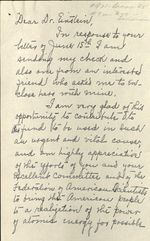 Dear Dr. Einstein,
In response to your
letter of June 15th I am
sending my check and
also one from an interested
friend who asked me to en-
close hers with mine.
I am very glad of this
opportunity to contribute to
a fund to be used in such
an urgent and vital cause,
and am highly appreciative
of the efforts of you and your
excellent Committee and of the
Federation of American Scientists
to bring the American people
to a realization of the power
of atomic energy for possible